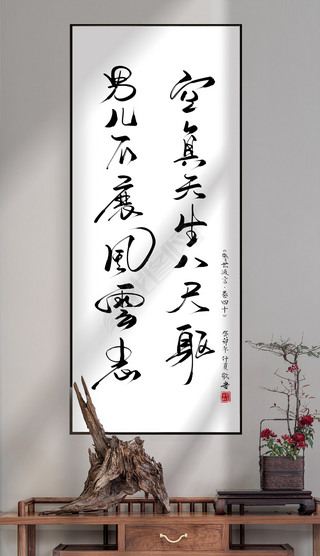 空負天生八尺軀
男兒不展風雲志
《警世通言·卷四十》 癸卯年仲夏敬書